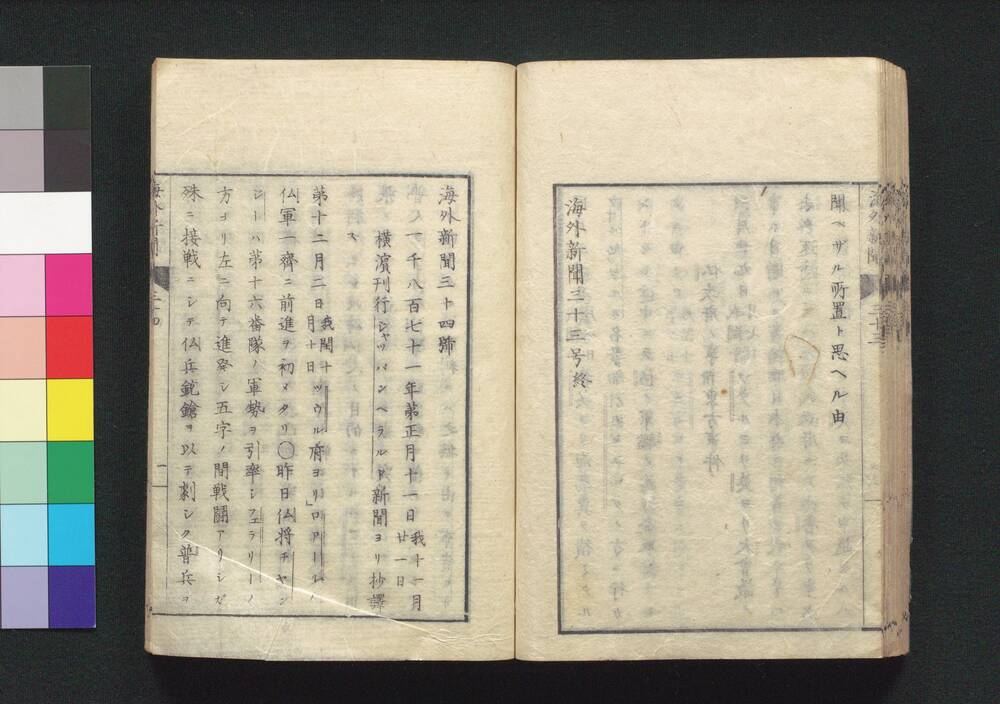 聞ヘザル所置ト思ヘル由
海外新聞三十三号終
海外新聞
三十三
海外新聞三十四號
一千八百七十一年第正月十一日我十一月廿一日
横濱刊行ジャッパンヘラルド新聞ヨリ抄譯
第十二月二日我閏十月十日ツウル府ヨリロアールノ
仏軍一齊ニ前進ヲ初メタリ〇昨日仏将チヤン
ジーハ第十六番隊ノ軍勢ヲ引率シフェテリーノ
方ヨリ左ニ向テ進発シ五字ノ間戦鬪アリシガ
殊ニ接戦ニシテ仏兵銃鎗ヲ以テ劇シク普兵ヲ
海外新聞
三十四
一